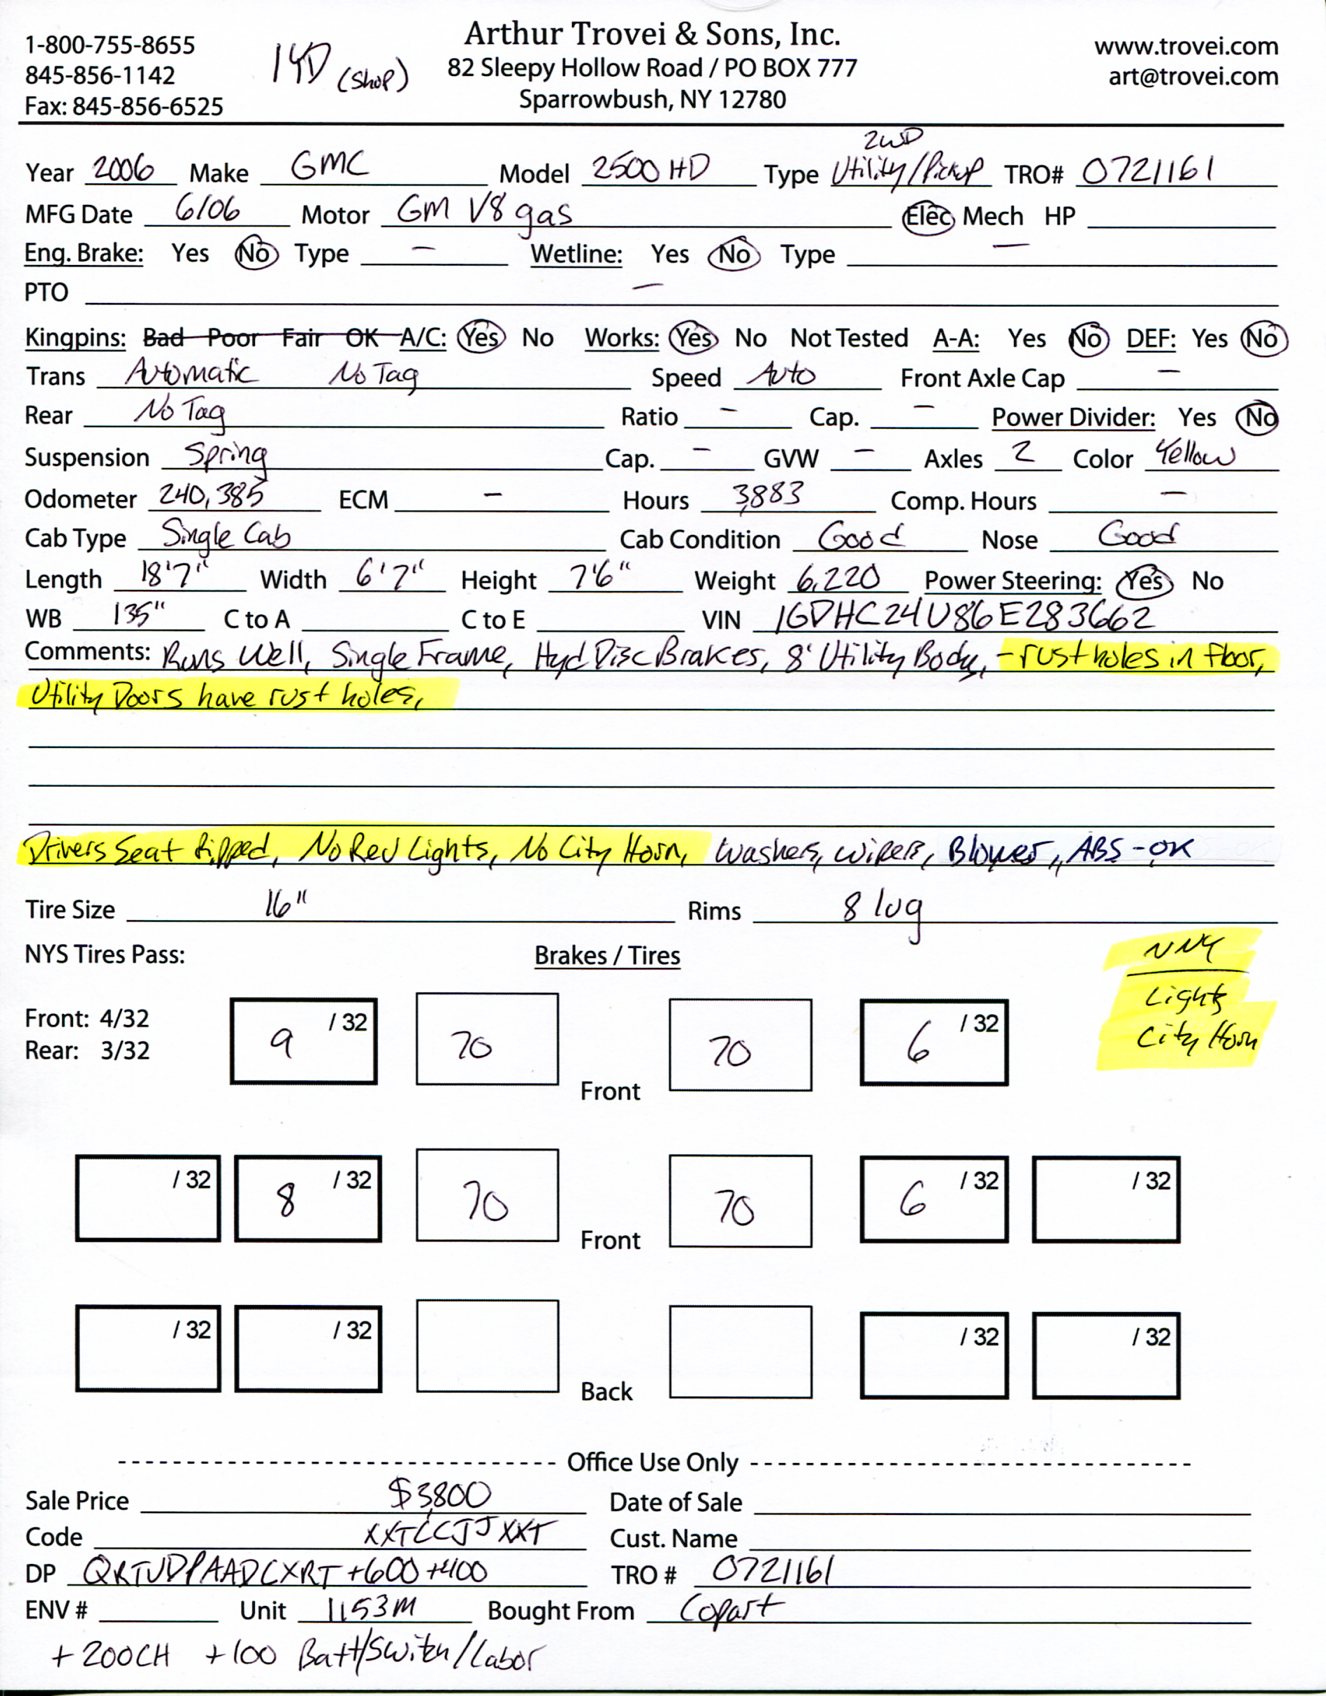 1-800-755-8655
845-856-1142
Fax: 845-856-6525
1YD (shop)
Arthur Trovei & Sons, Inc.
82 Sleepy Hollow Road / PO BOX 777
Sparrowbush, NY 12780
www.trovei.com
art@trovei.com
2WD
Year 2006 Make GMC Model 2500 HD Type Utility/Pickup TRO# 0721161
MFG Date 6/06 Motor GM V8 gas Elec Mech HP
Eng. Brake: Yes No Type — Wetline: Yes No Type —
PTO —
Kingpins: Bad Poor Fair OK A/C: Yes No Works: Yes No Not Tested A-A: Yes No DEF: Yes No
Trans Automatic No Tag Speed Auto Front Axle Cap —
Rear No Tag Ratio — Cap. — Power Divider: Yes No
Suspension Spring Cap. — GVW — Axles 2 Color Yellow
Odometer 240,385 ECM — Hours 3,883 Comp. Hours —
Cab Type Single Cab Cab Condition Good Nose Good
Length 18'7" Width 6'7" Height 7'6" Weight 6,220 Power Steering: Yes No
WB 135" C to A C to E VIN 1GDHC24U86E283662
Comments: Runs Well, Single Frame, Hyd Disc Brakes, 8' Utility Body, - rust holes in floor,
Utility Doors have rust holes,
Drivers Seat Ripped, No Rev Lights, No City Horn, Washers, Wipers, Blower, ABS - OK
Tire Size 16" Rims 8 lug
NYS Tires Pass: Brakes / Tires
NNY
Lights
City Horn
Front: 4/32
Rear: 3/32
9 /32 70 Front 70 6 /32
/32 8 /32 70 Front 70 6 /32 /32
/32 /32 Back /32 /32
Office Use Only
Sale Price $3,800 Date of Sale
Code XXTCCJJXXT Cust. Name
DP QRTUDPAADCXRT +600 +400 TRO # 0721161
ENV # Unit 1153M Bought From Copart
+200CH +100 Batt/Switch/Labor